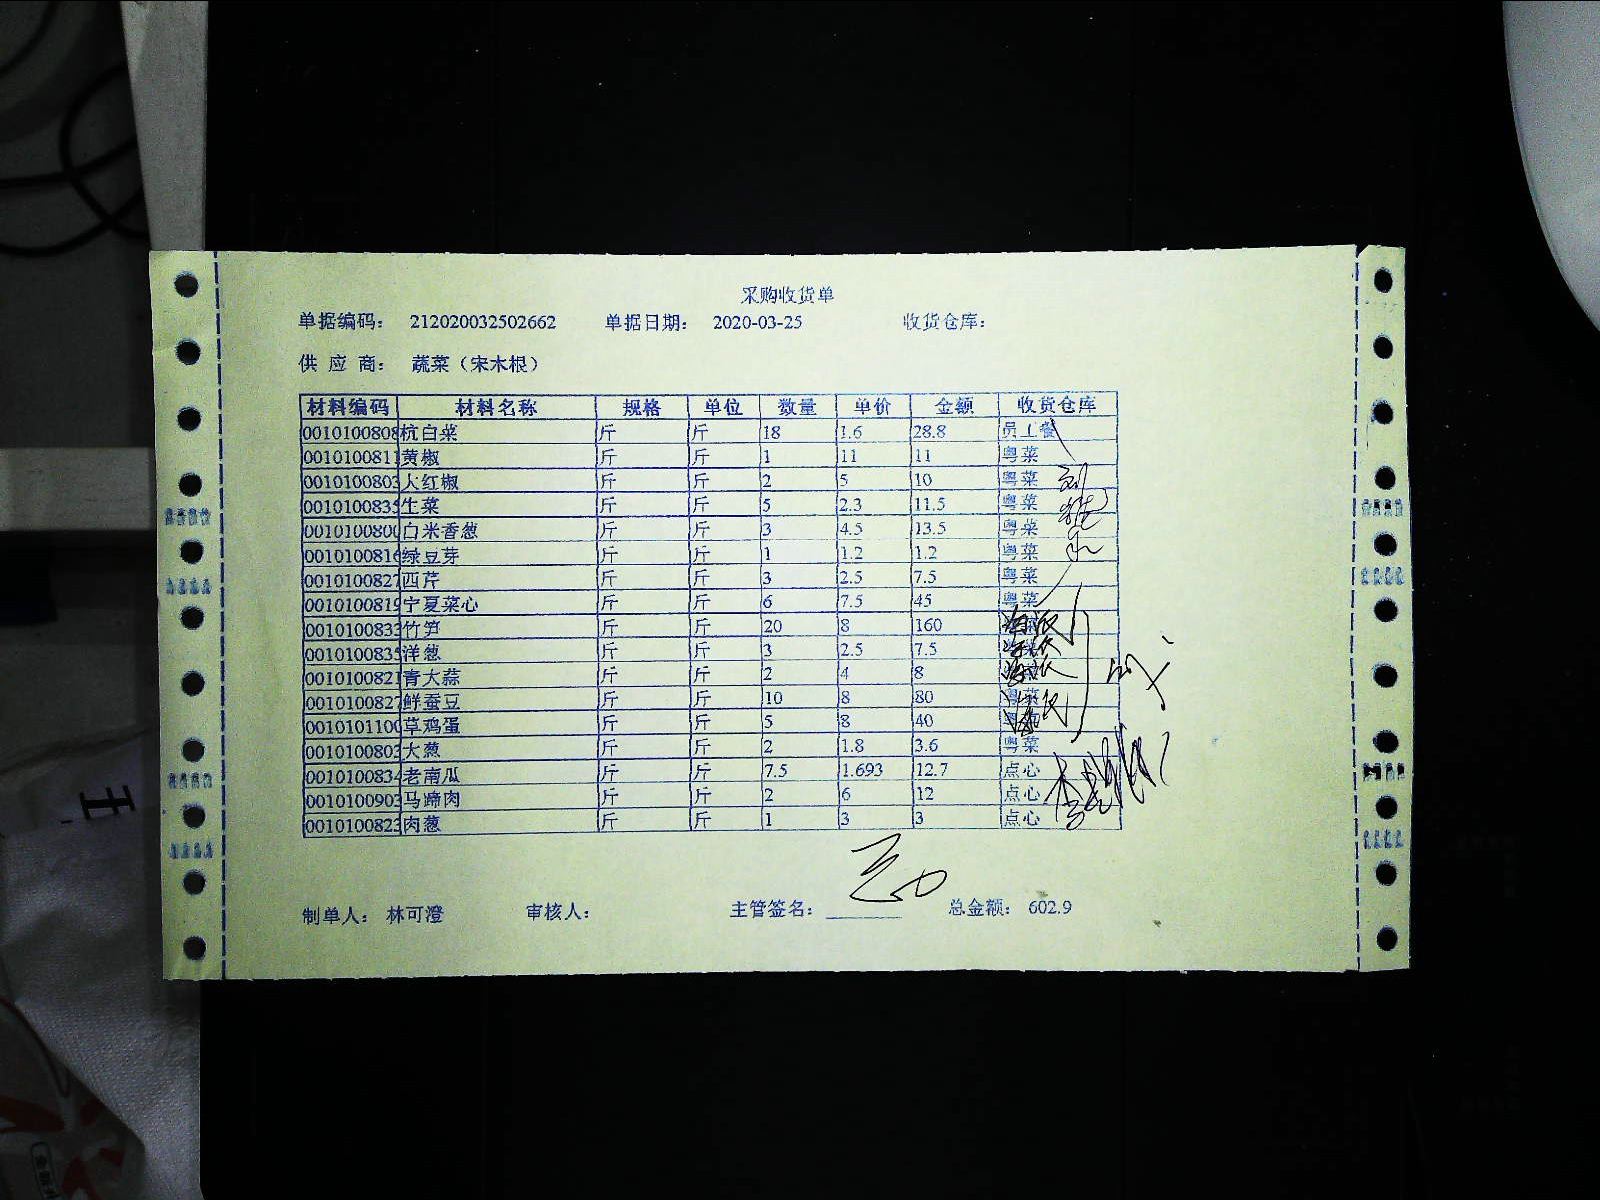 采购收货单
单据编码： 212020032502662 单据日期： 2020-03-25 收货仓库：
供 应 商： 蔬菜（宋木根）
材料编码 材料名称 规格 单位 数量 单价 金额 收货仓库
0010100808 杭白菜 斤 斤 18 1.6 28.8 员工餐
0010100811 黄椒 斤 斤 1 11 11 粤菜
0010100803 大红椒 斤 斤 2 5 10 粤菜
0010100835 生菜 斤 斤 5 2.3 11.5 粤菜
0010100800 白米香葱 斤 斤 3 4.5 13.5 粤菜
0010100816 绿豆芽 斤 斤 1 1.2 1.2 粤菜
0010100827 西芹 斤 斤 3 2.5 7.5 粤菜
0010100819 宁夏菜心 斤 斤 6 7.5 45 粤菜
0010100833 竹笋 斤 斤 20 8 160
0010100835 洋葱 斤 斤 3 2.5 7.5
0010100821 青大蒜 斤 斤 2 4 8
0010100827 鲜蚕豆 斤 斤 10 8 80 粤菜
0010101100 草鸡蛋 斤 斤 5 8 40
0010100803 大葱 斤 斤 2 1.8 3.6 粤菜
0010100834 老南瓜 斤 斤 7.5 1.693 12.7 点心
0010100903 马蹄肉 斤 斤 2 6 12 点心
0010100823 肉葱 斤 斤 1 3 3 点心
制单人： 林可澄 审核人： 主管签名： 总金额： 602.9